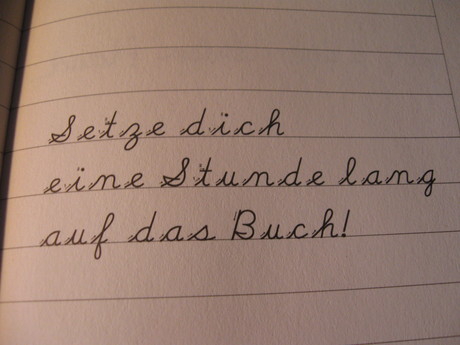 Setze dich
eine Stunde lang
auf das Buch!